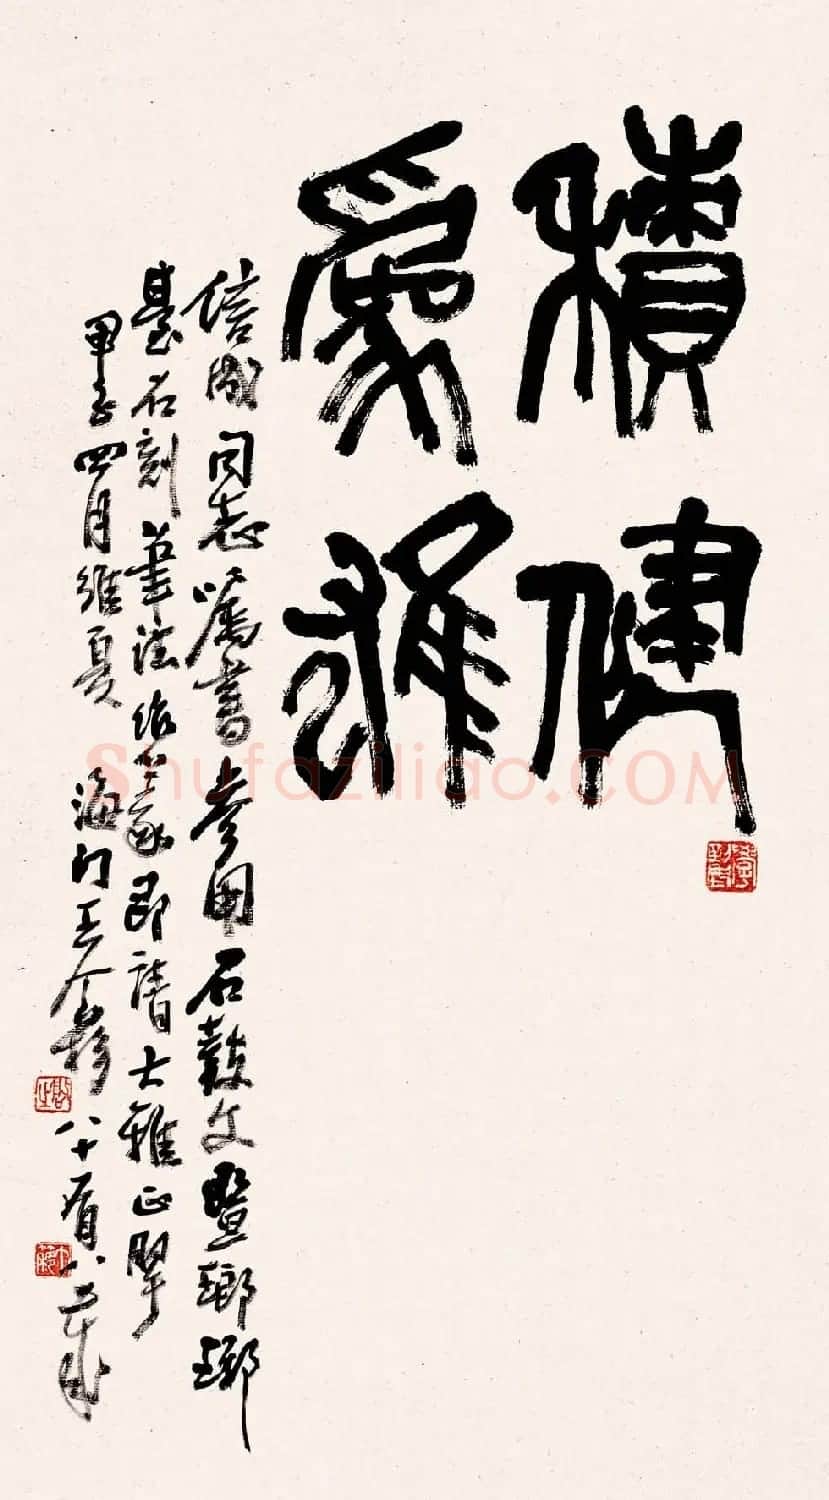 積健
為雄
信成同志嘱書參用石鼓文暨瑯琊
臺石刻筆法作篆即請大雅正擘
甲子四月維夏 海门王个簃八十有八歲
Shufaziliao.COM